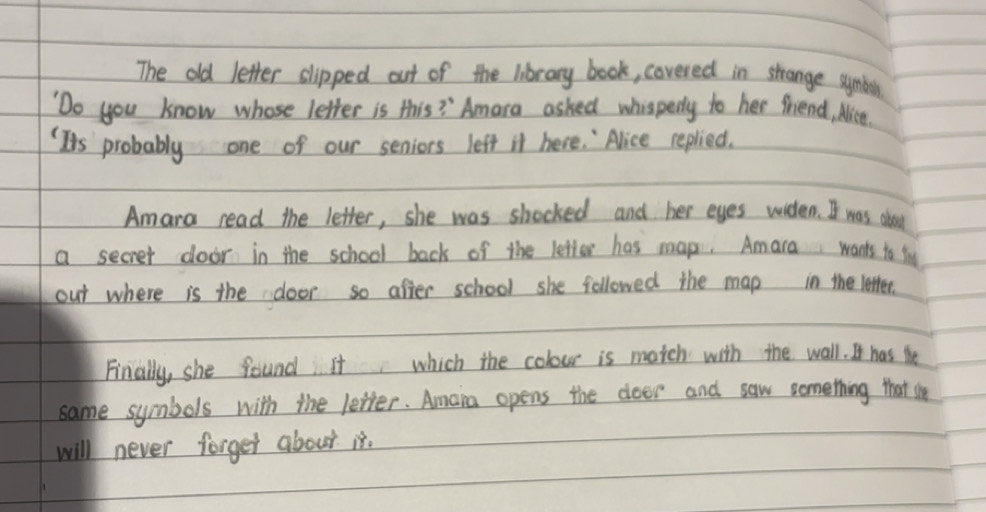 The old letter slipped out of the library book, covered in strange symbols.
'Do you know whose letter is this?' Amara asked whisperly to her friend, Alice.
'Its probably one of our seniors left it here.' Alice replied.
Amara read the letter, she was shocked and her eyes widen. It was about
a secret door in the school back of the letter has map. Amara wants to find
out where is the door so after school she followed the map in the letter.
Finally, she found it which the colour is match with the wall. It has the
same symbols with the letter. Amara opens the door and saw something that she
will never forget about it.